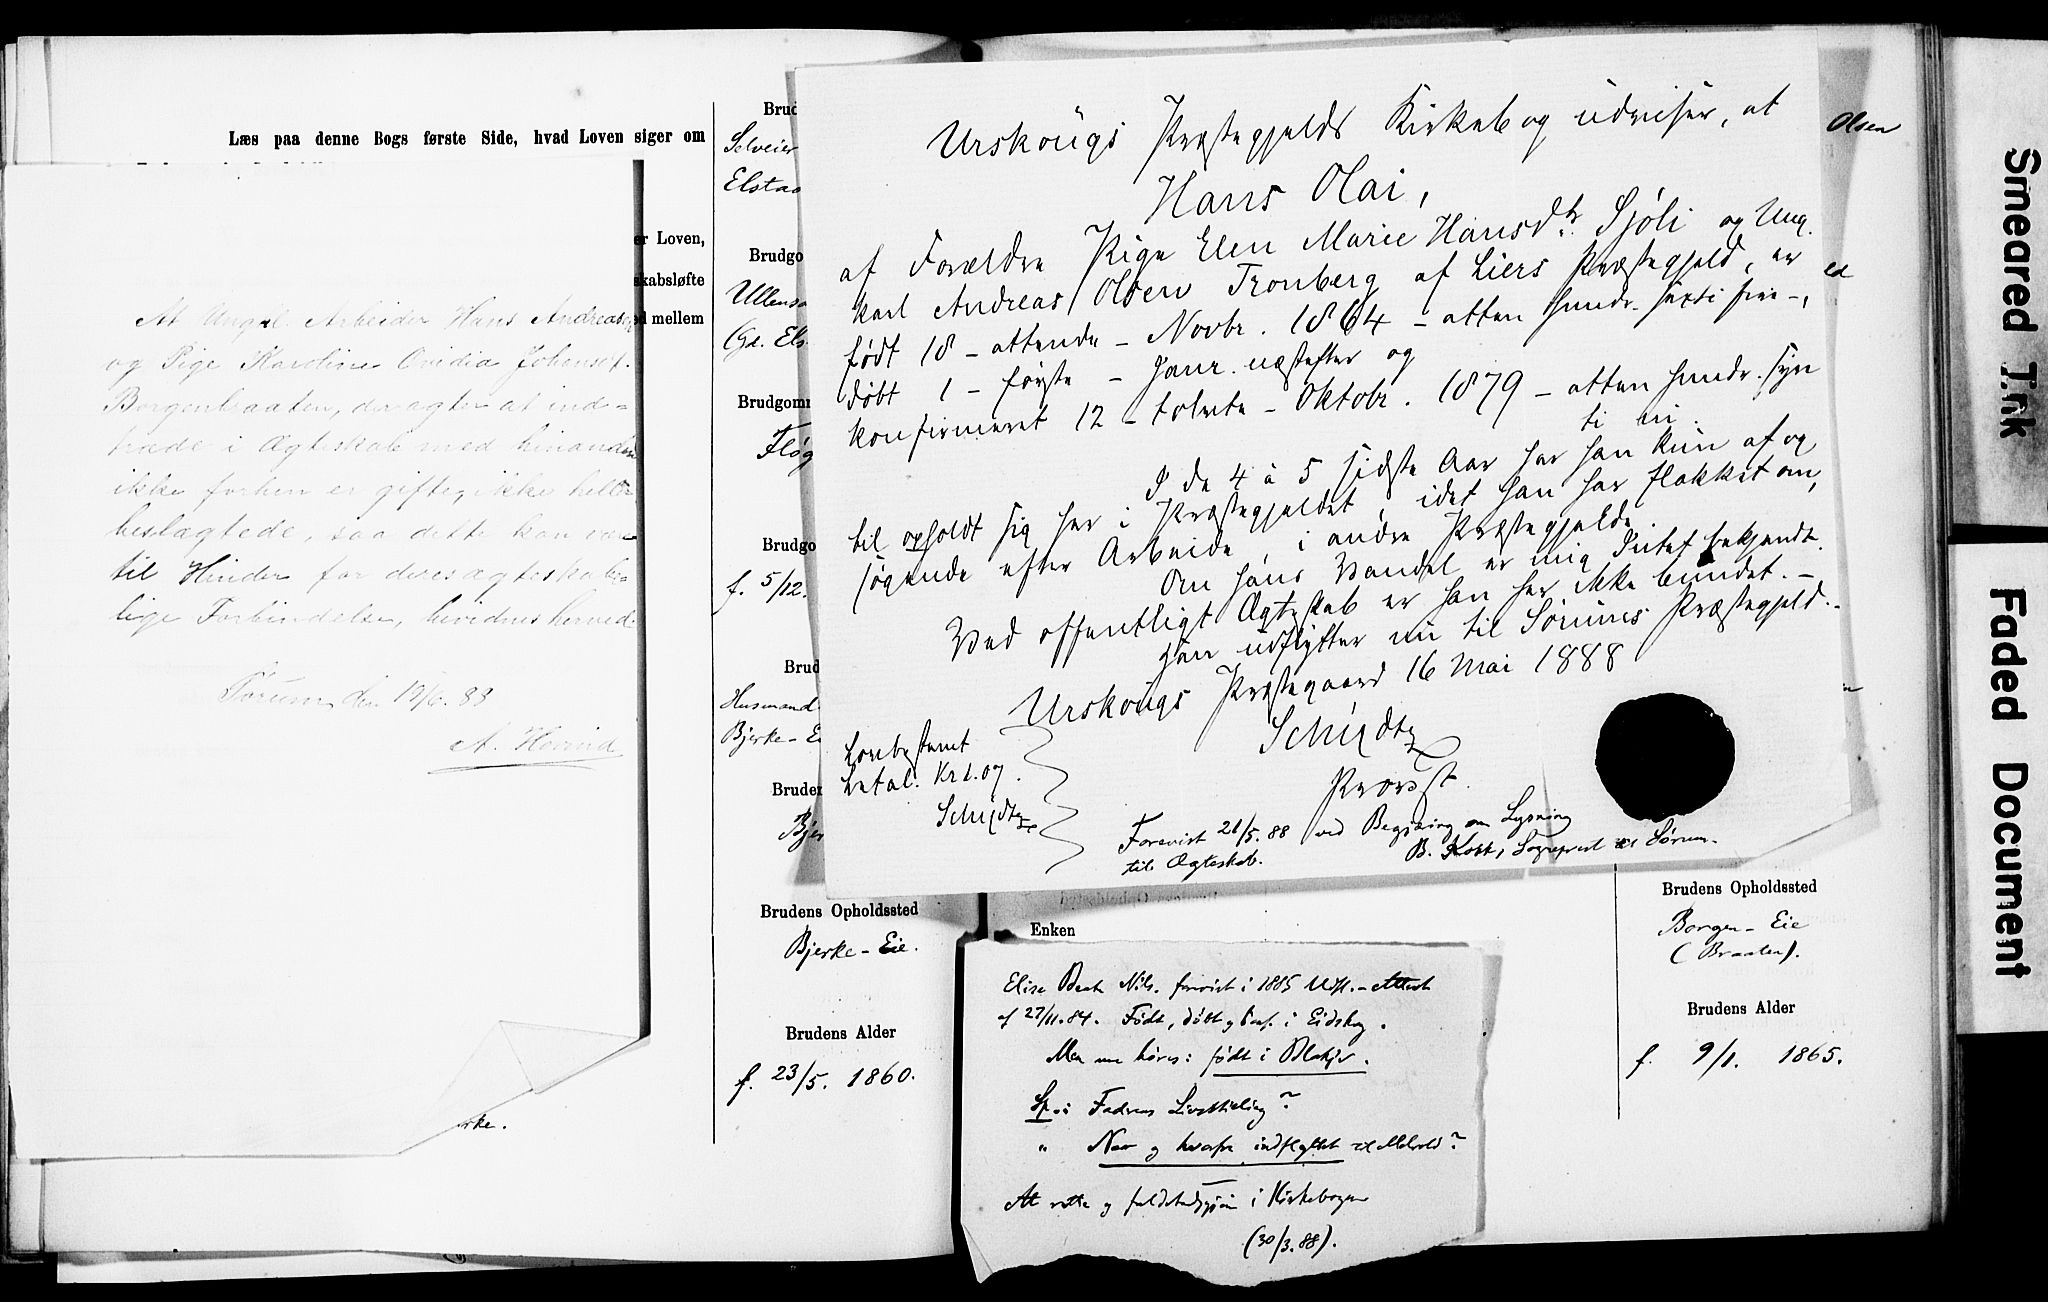 Læs paa denne Bogs første Side, hvad Loven siger om
er Loven,
skabsløfte
ed mellem
At Ungkl. Arbeider Hans Andreas
og Pige Karoline Ovidia Johansd.
Borgenbraaten, der agter at ind=
træde i Ægteskab med hinanden
ikke forhen er giftet, ikke heller
beslægtede, saa dette kan være
til Hinder for deres ægteskabe-
lige Forbindelse, bevidnes herved
Sørum den 19/6. 88
A. Hovind
rke.
Brud
Selveier
Elstad
Brudgo
Ullensa
Gd. Els
Brudgomm
Fløg
Brudgo
f. 5/12.
Brud
Husmand
Bjerke - E
Bruden
Bjer
Brudens Opholdssted
Bjerke - Eie.
Brudens Alder
f. 23/5. 1860.
Urskougs Præstegjelds Kirkebog udviser, at
Hans Olai,
af Forældre Pige Elen Marie Hansdtr. Sjøli og Ung-
karl Andreas Olsen Tronberg af Liers Præstegjeld, er
født 18 - attende - Novbr. 1864 - atten hundr. sexti fire -,
døbt 1 - første - Janr. næstefter og
konfirmeret 12 - tolvte - Oktobr. 1879 - atten hundr. syv
ti ni.
I de 4 à 5 sidste Aar har han kun af og
til opholdt sig her i Præstegjeldet, idet han har flakket om,
søgende efter Arbeide, i andre Præstegjelde.
Om hans Vandel er mig Intet bekjendt.
Ved offentligt Ægteskab er han her ikke bundet. -
Han udflytter nu til Sørums Præstegjeld. -
Urskougs Præstegaard 16 Mai 1888
Schydtz
Provst.
Lovbestemt
betal. Kr 1.07.
Schydtz
Forevist 21/5. 88 ved Begjæring om Lysning
til Ægteskab.
B. Kobbe, Sogneprest til Sørum.
Enken
Elise Beate Nils. forevist i 1885 Udfl. - Attest
af 27/11. 84. Født, døbt og conf. i Eidskog.
Men nu høres: født i Blakjer.
Sp.: Fadrens Livsstilling?
" Naar og hvorfra indflyttet til
At rette og i Kirkebogen
(30/3. 88).
Olsen
ed
Brudens Opholdssted
Borgen - Eie
(Braaten).
Brudens Alder
f. 9/1. 1865.
Smeared Ink
Faded Document